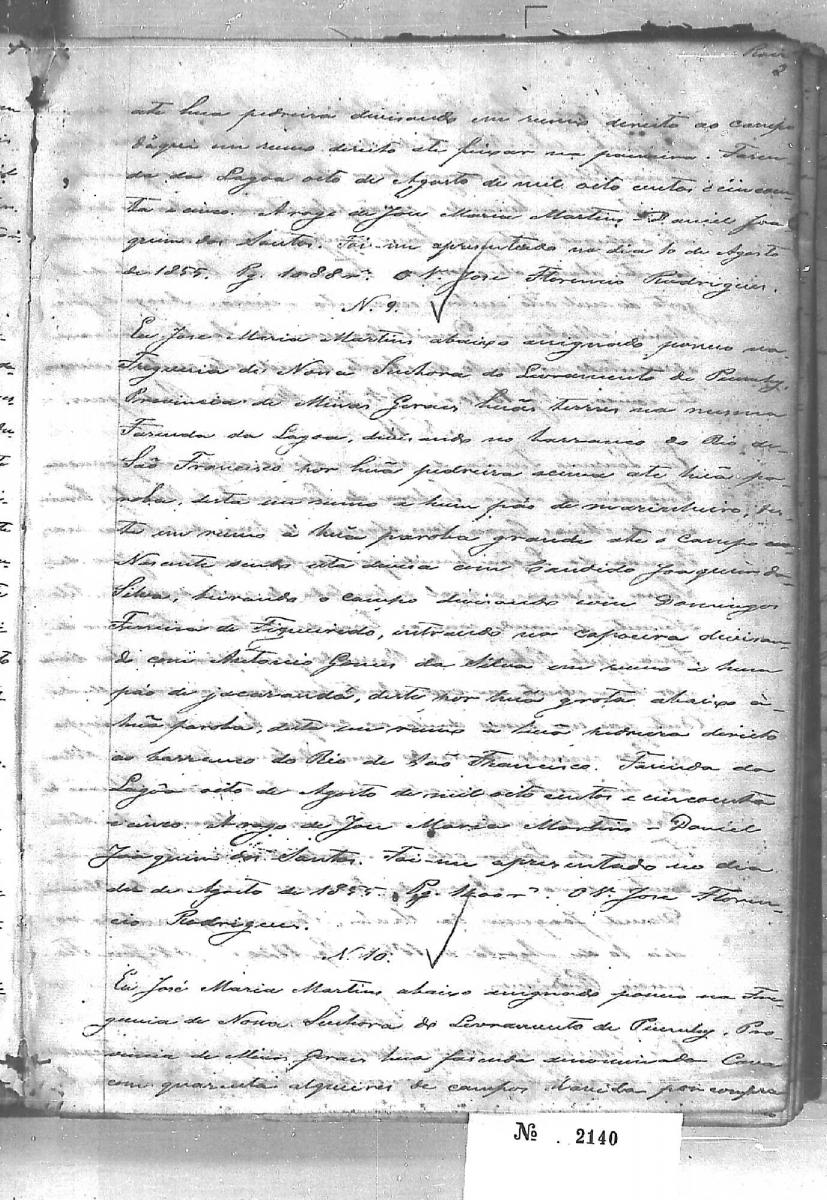 2
até hua pedreira divisando em rumo direito ao campo
d'aqui em rumo direito até feixar na paineira. Fasen-
da da Lagoa oito de Agosto de mil oito centos e cincoen-
ta e cinco. A rogo de Jose Maria Martins - Daniel Joa
quim dos Santos. Foi-me apresentado no dia 10 de Agosto
de 1855. Pg. O Vr.º Jose Florencio Rodrigues.
N. 9.
Eu Jose Maria Martins abaixo asignado possuo na
Freguesia de Nossa Senhora do Livramento de Piumhy,
Provincia de Minas Gerais huãs terras na mesma
Fazenda da Lagoa, divisando no barranco do Rio de
São Francisco por huã pedreira acima até huã pa-
roba, desta em rumo a hum páo de marinheiro, des-
te em rumo à huã paroba grande até o campo ao
Nascente sendo esta divisa com Candido Joaquim da
Silva, beirando o campo divisando com Domingos
Ferreira de Figueiredo, entrando na capoeira divisan-
do com Antonio Gomes da Silva em rumo à hum
páo de jacarandá, deste por huã grota abaixo à
huã paroba, desta em rumo à huã pedreira direito
ao barranco do Rio de São Francisco. Fazenda da
Lagôa oito de Agosto de mil oito centos e cincoenta
e cinco. A rogo de Jose Maria Martins - Daniel
Joaquim dos Santos. Foi-me apresentado no dia
dez de Agosto de 1855. Pg. O Vr.º Jose Floren-
cio Rodrigues.
N. 10.
Eu José Maria Martins abaixo asignado possuo na Fre
guesia de Nossa Senhora do Livramento de Piumhy, Pro-
vincia de Minas Gerais hua fasenda denominada
com quarenta alqueires de campos havida por compra
Nº 2140